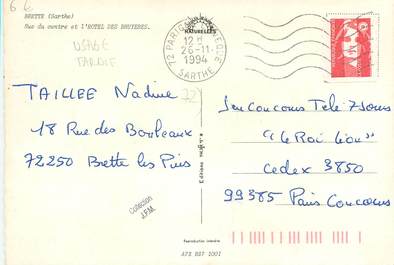 6 €
BRETTE (Sarthe)
Rue du centre et l'HOTEL DES BRUYERES.
USAGE
TARDIF
NATURELLES
72 PARIGNE L'EVEQUE
12 H
26-11
1994
SARTHE
TAILLEE Nadine
18 Rue des Bouleaux
72250 Brette les Pins
Collection
J.P.M.
Editions
Jeu Concours Télé 7 Jours
"Le Roi Lion"
Cedex 3850
99385 Paris Concours
Reproduction interdite
A72 BS7 1001